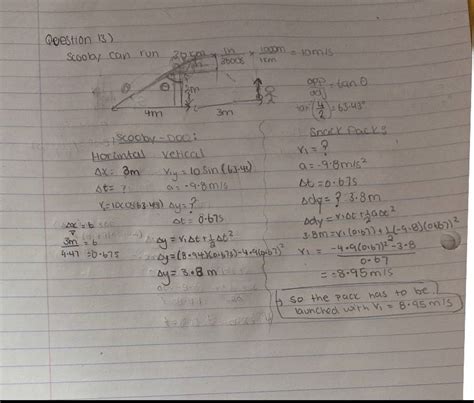 Question 13)
Scooby can run 36 km/h × 1h/3600s × 1000m/1km = 10m/s
opp/adj = tan θ
(4/2) = 63.43°
θ
θ
2m
4m
3m
Scooby-Doo:
Horizontal Vertical
Δx = 3m v₁y = 10 sin(63.43)
Δt = ? a = -9.8m/s²
v = 10 cos(63.43) Δy = ?
Δt = 0.67s
Δx/v = t
3m/4.47 = 0.67s
Δy = v₁Δt + ½at²
Δy = (8.94)(0.67s) - 4.9(0.67)²
Δy = 3.8m
Snack Packs
v₁ = ?
a = -9.8m/s²
Δt = 0.67s
Δdy = ? 3.8m
Δdy = v₁Δt + ½at²
3.8m = v₁(0.67) + ½(-9.8)(0.67)²
v₁ = -4.9(0.67)² - 3.8 / 0.67
= 8.95m/s
so the pack has to be
launched with v₁ = 8.95m/s